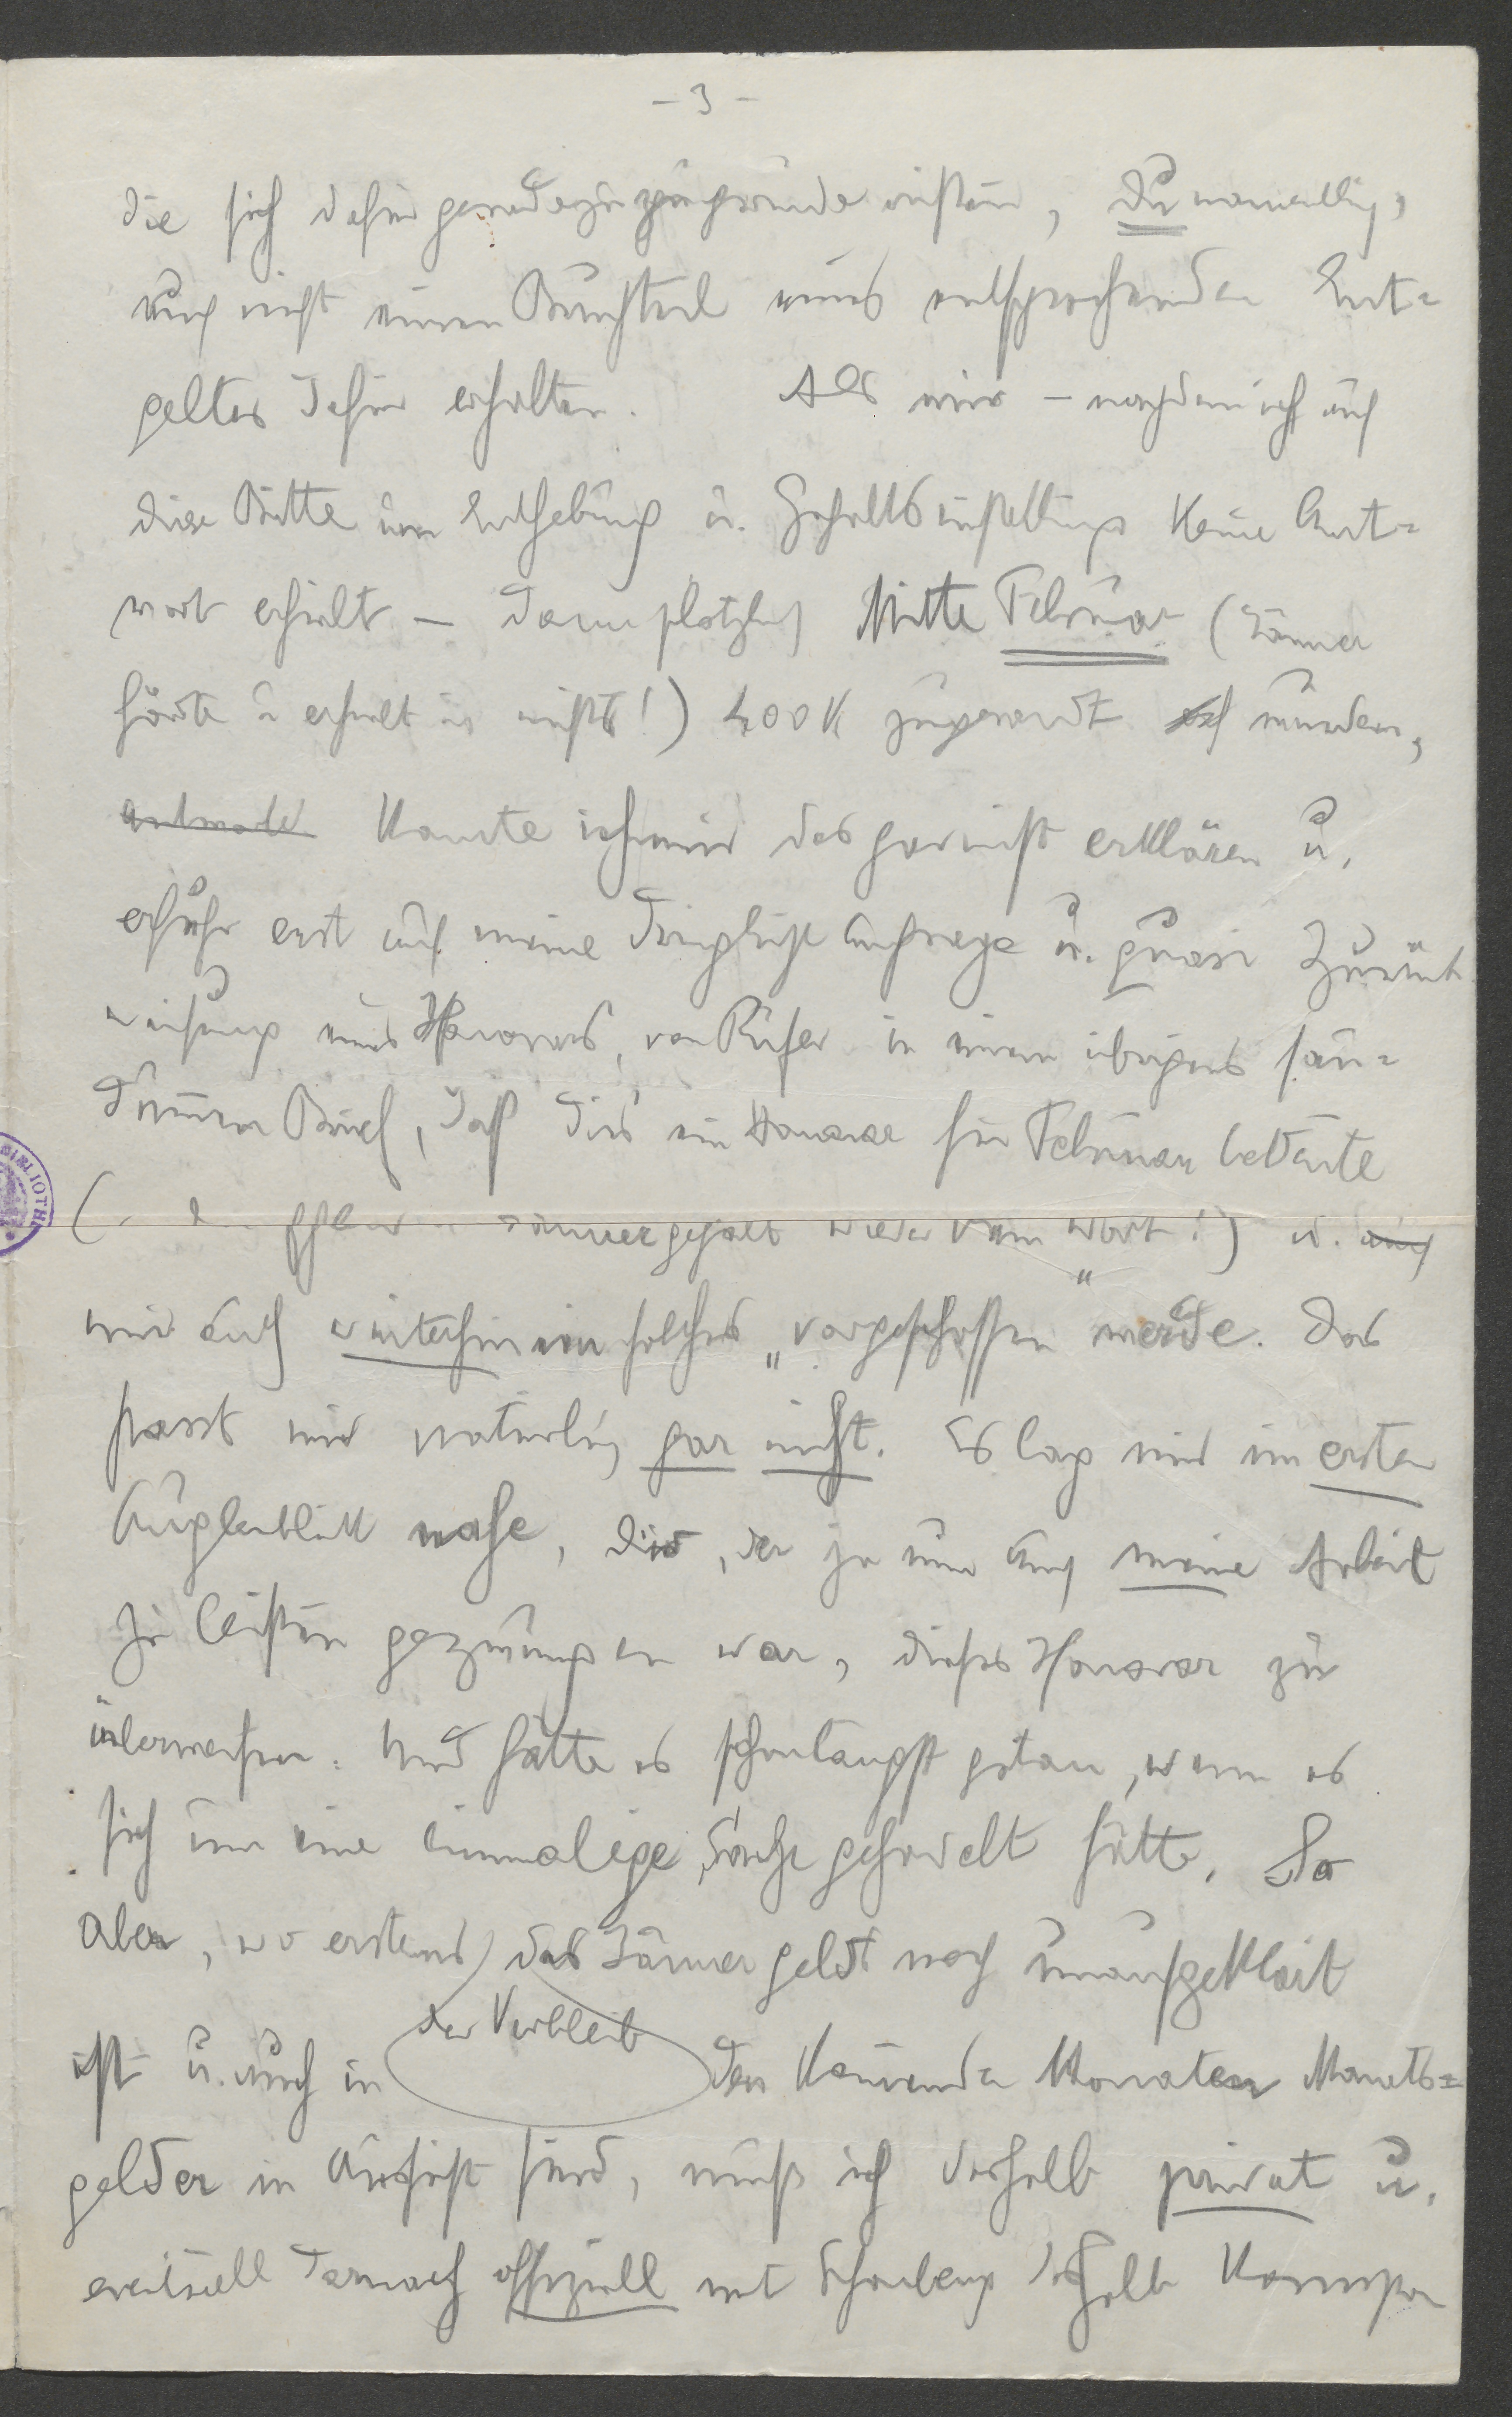 - 3 -
die sich dafür geradezu zugrunde richten, Du namentlich,
auch nicht einen Bruchteil eines entsprechenden Ent-
geltes dafür erhalten. Als mir – nachdem ich auf
diese Bitte um Enthebung u. Gehaltseinstellung keine Ant-
wort erhielt – dann plötzlich Mitte Februar (Jänner
hörte u erhielt ich nichts!) 400 K zugesandt wurden,
konnte ich mir das gar nicht erklären u.
erfuhr erst auf meine Anfrage u. quasi Zurück
weisung eines Honorars, von Rufer in einem übrigens
Brief, daß dies ein Honorar für Februar bedeute
( Jännergehalt wieder kein Wort!) u. auch
mir auch weiterhin ein solches „vorgeschossen" werde. Das
passt mir natürlich gar nicht. Es lag mir im ersten
Augenblick nahe, dir, der ja nun auch meine Arbeit
zu leisten gezwungen war, dieses Honorar zu
überweisen. Und hätte es schon längst getan, wenn es
sich um eine einmalige Sache gehandelt hätte. So
aber, wo erstens das Jännergeld noch unaufgeklärt
der Verbleib
ist u. auch in den kommenden Monaten Monats=
gelder in Aussicht sind, muß ich deshalb privat u.
eventuell darnach offiziell mit Schönberg deshalb